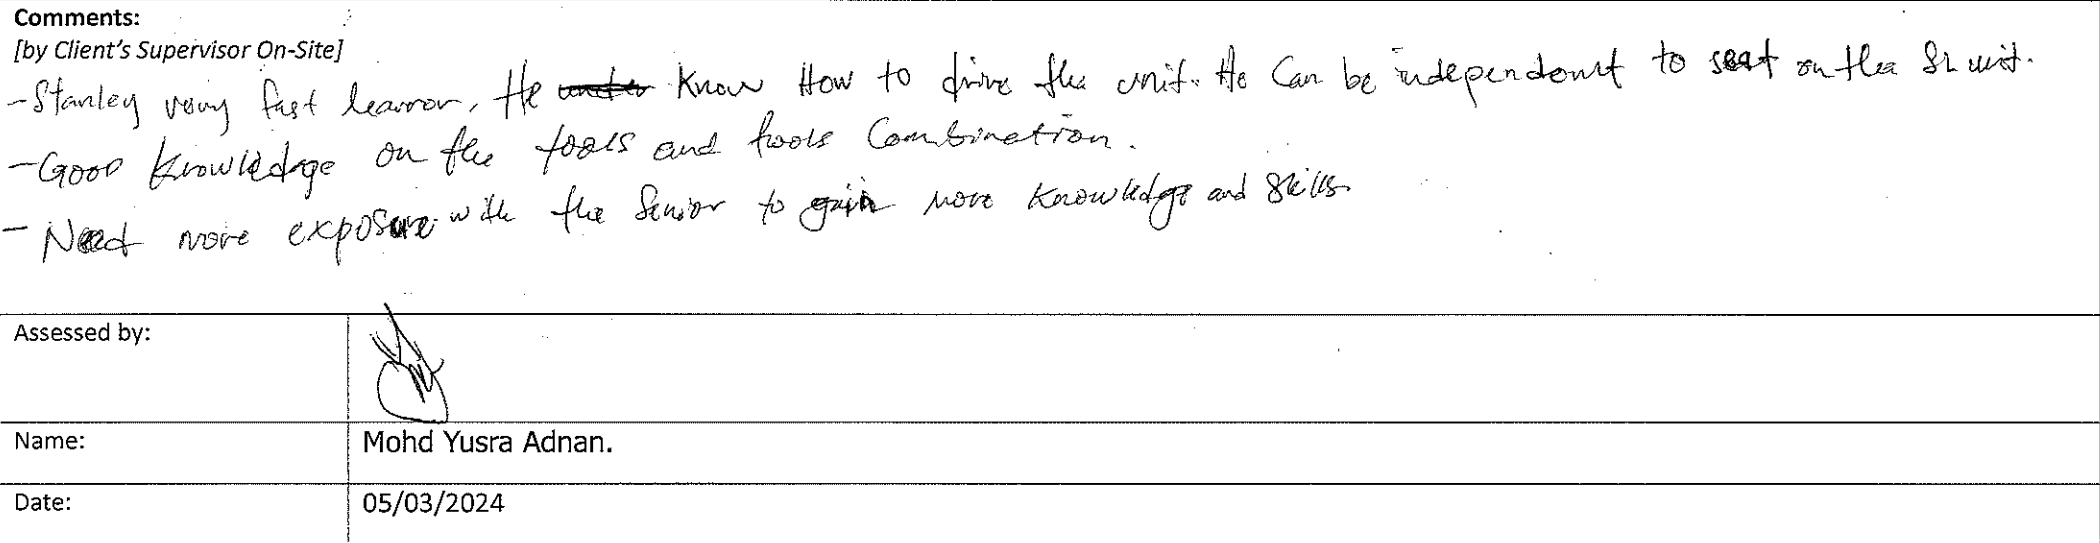 Comments:
[by Client's Supervisor On-Site]
- Stanley very fast learner, He know How to drive the unit. He Can be independent to seat on the SL unit.
- Good knowledge on the tools and tools Combination.
- Need more exposure with the Senior to gain more knowledge and skills
Assessed by:
Name: Mohd Yusra Adnan.
Date: 05/03/2024